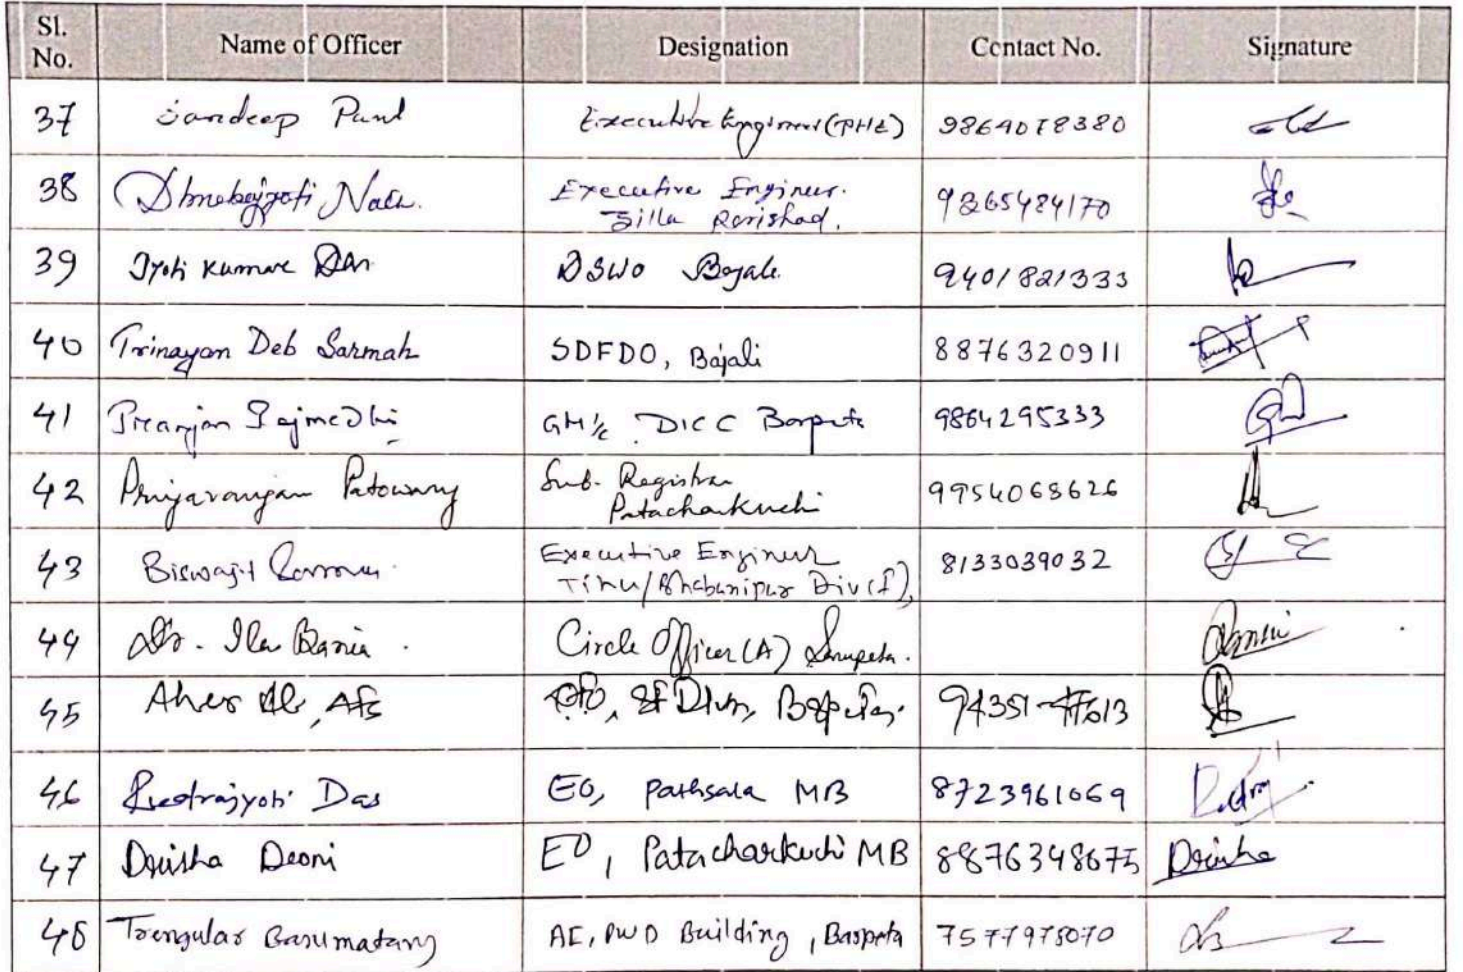 Sl. No. Name of Officer Designation Contact No. Signature
37 Sandeep Paul Executive Engineer (PHE) 9864078380
38 Nath. Executive Engineer. Zilla Parishad. 9365484170
39 Jyoti Kumar Das DSWO Bajali. 9401821333
40 Trinayan Deb Sarmah SDFDO, Bajali 8876320911
41 Rajmedhi GM i/c DICC Barpeta 9864295333
42 Priyaranjan Patowary Sub. Registrar Patacharkuchi 9954068626
43 Biswajit Executive Engineer Tihu/Bhabanipur Div (I), 8133039032
44 Dr. Ila Bania. Circle Officer (A) Sarupeta.
45 Ali, AFS Divn,
46 Rudrajyoti Das EO, Pathsala MB 8723961069
47 Drisha Deori EO, Patacharkuchi MB 8876348675 Drisha
48 Basumatary AE, PWD Building, Barpeta 7577978070